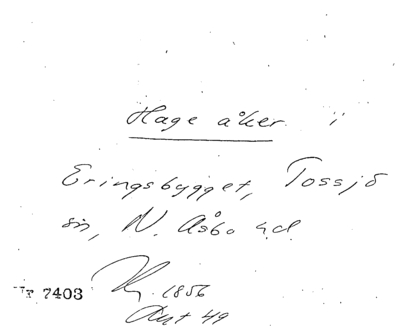 Hage åker i
Eringsbygget, Tossjö
sn, N. Åsbo hd.
Nr 7403
Ky. 1856
Akt 49